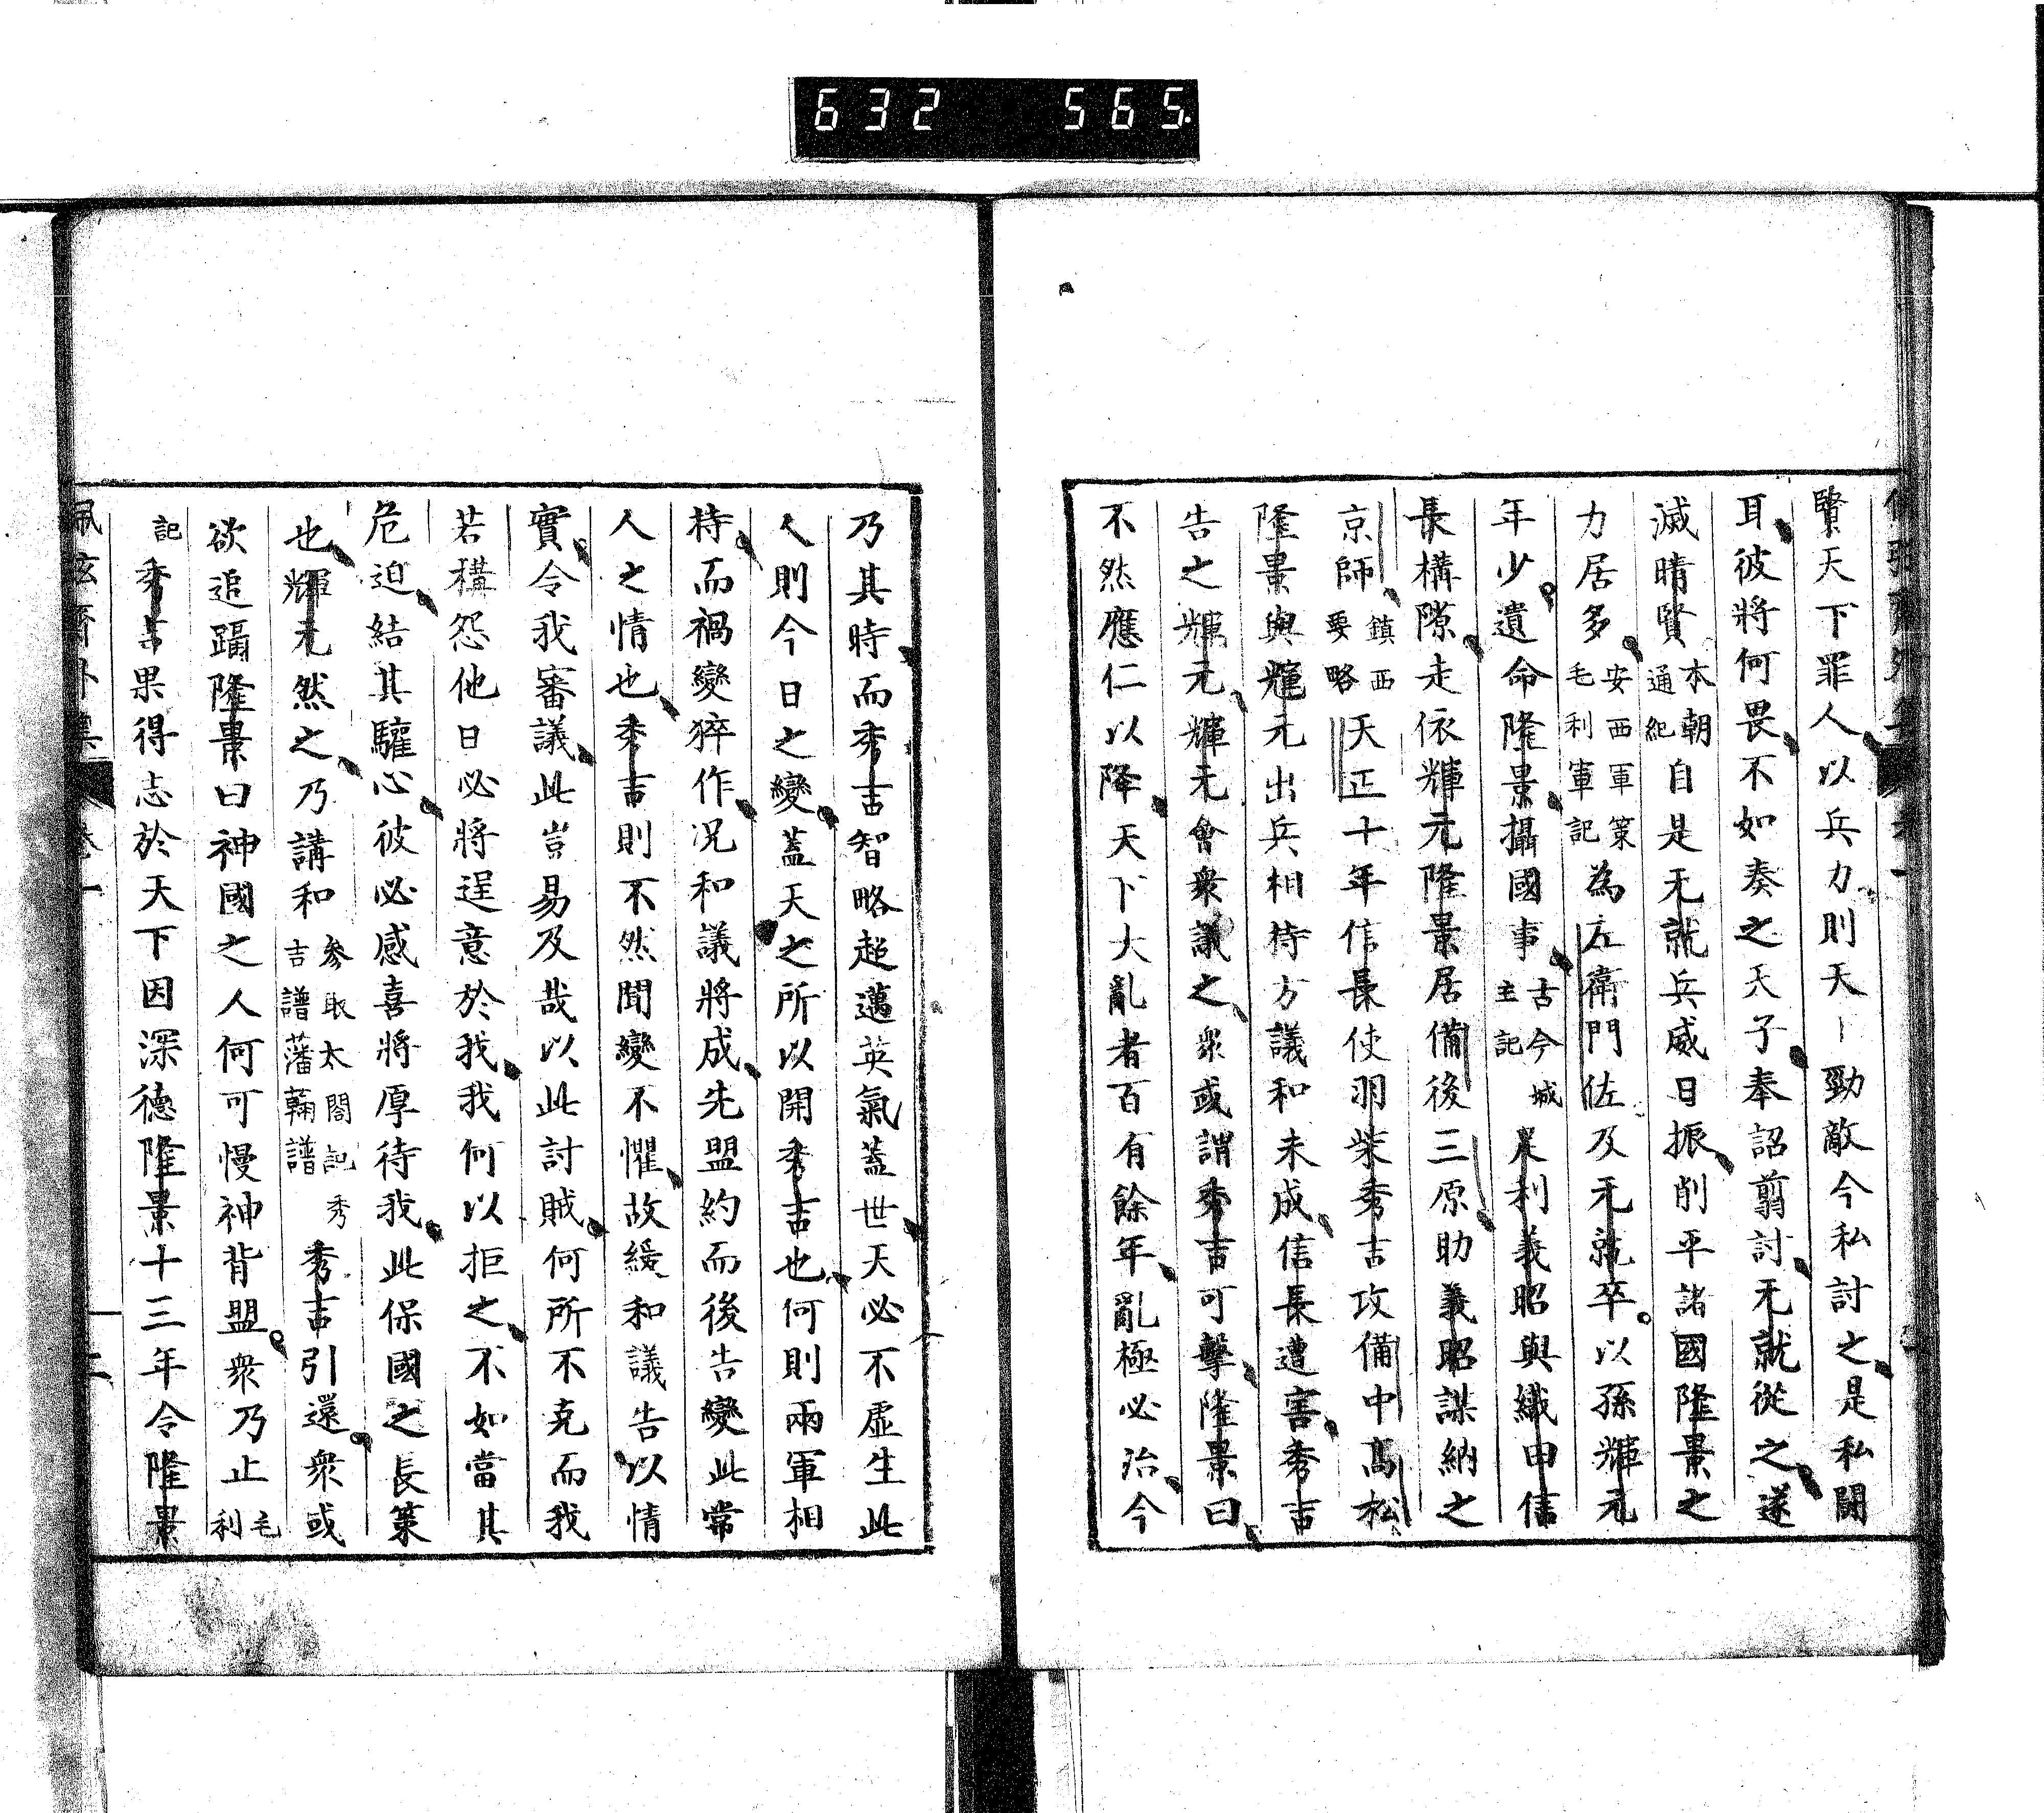 632 565
賢天下罪人以兵力則天〻勁敵今私討之是私鬪
耳彼將何畏不如奏之天子奉詔翦討元就從之遂
滅晴賢本朝通紀自是元就兵威日振削平諸國隆景之
力居多安西軍策毛利軍記為左衛門佐及元就卒以孫輝元
年少遺命隆景攝國事古今城主記足利義昭與織田信
長構隙走依輝元隆景居備後三原助義昭謀納之
京師鎮西要略天正十年信長使羽柴秀吉攻備中高松
隆景與輝元出兵相待方議和未成信長遭害秀吉
告之輝元輝元會衆議之衆或謂秀吉可擊隆景曰
不然應仁以降天下大亂者百有餘年亂極必治今
乃其時而秀吉智略超邁英氣蓋世天必不虛生此
人則今日之變蓋天之所以開秀吉也何則兩軍相
持而禍變猝作況和議將成先盟約而後告變此常
人之情也秀吉則不然聞變不懼故緩和議告以情
實令我審議此豈易及哉以此討賊何所不克而我
若構怨他日必將逞意於我我何以拒之不如當其
危迫結其驩心彼必感喜將厚待我此保國之長策
也輝元然之乃講和參取太閤記秀吉譜藩翰譜秀吉引還衆或
欲追躡隆景曰神國之人何可慢神背盟衆乃止毛利
記秀吉果得志於天下因深德隆景十三年令隆景
佩弦齋外集 卷一 十二